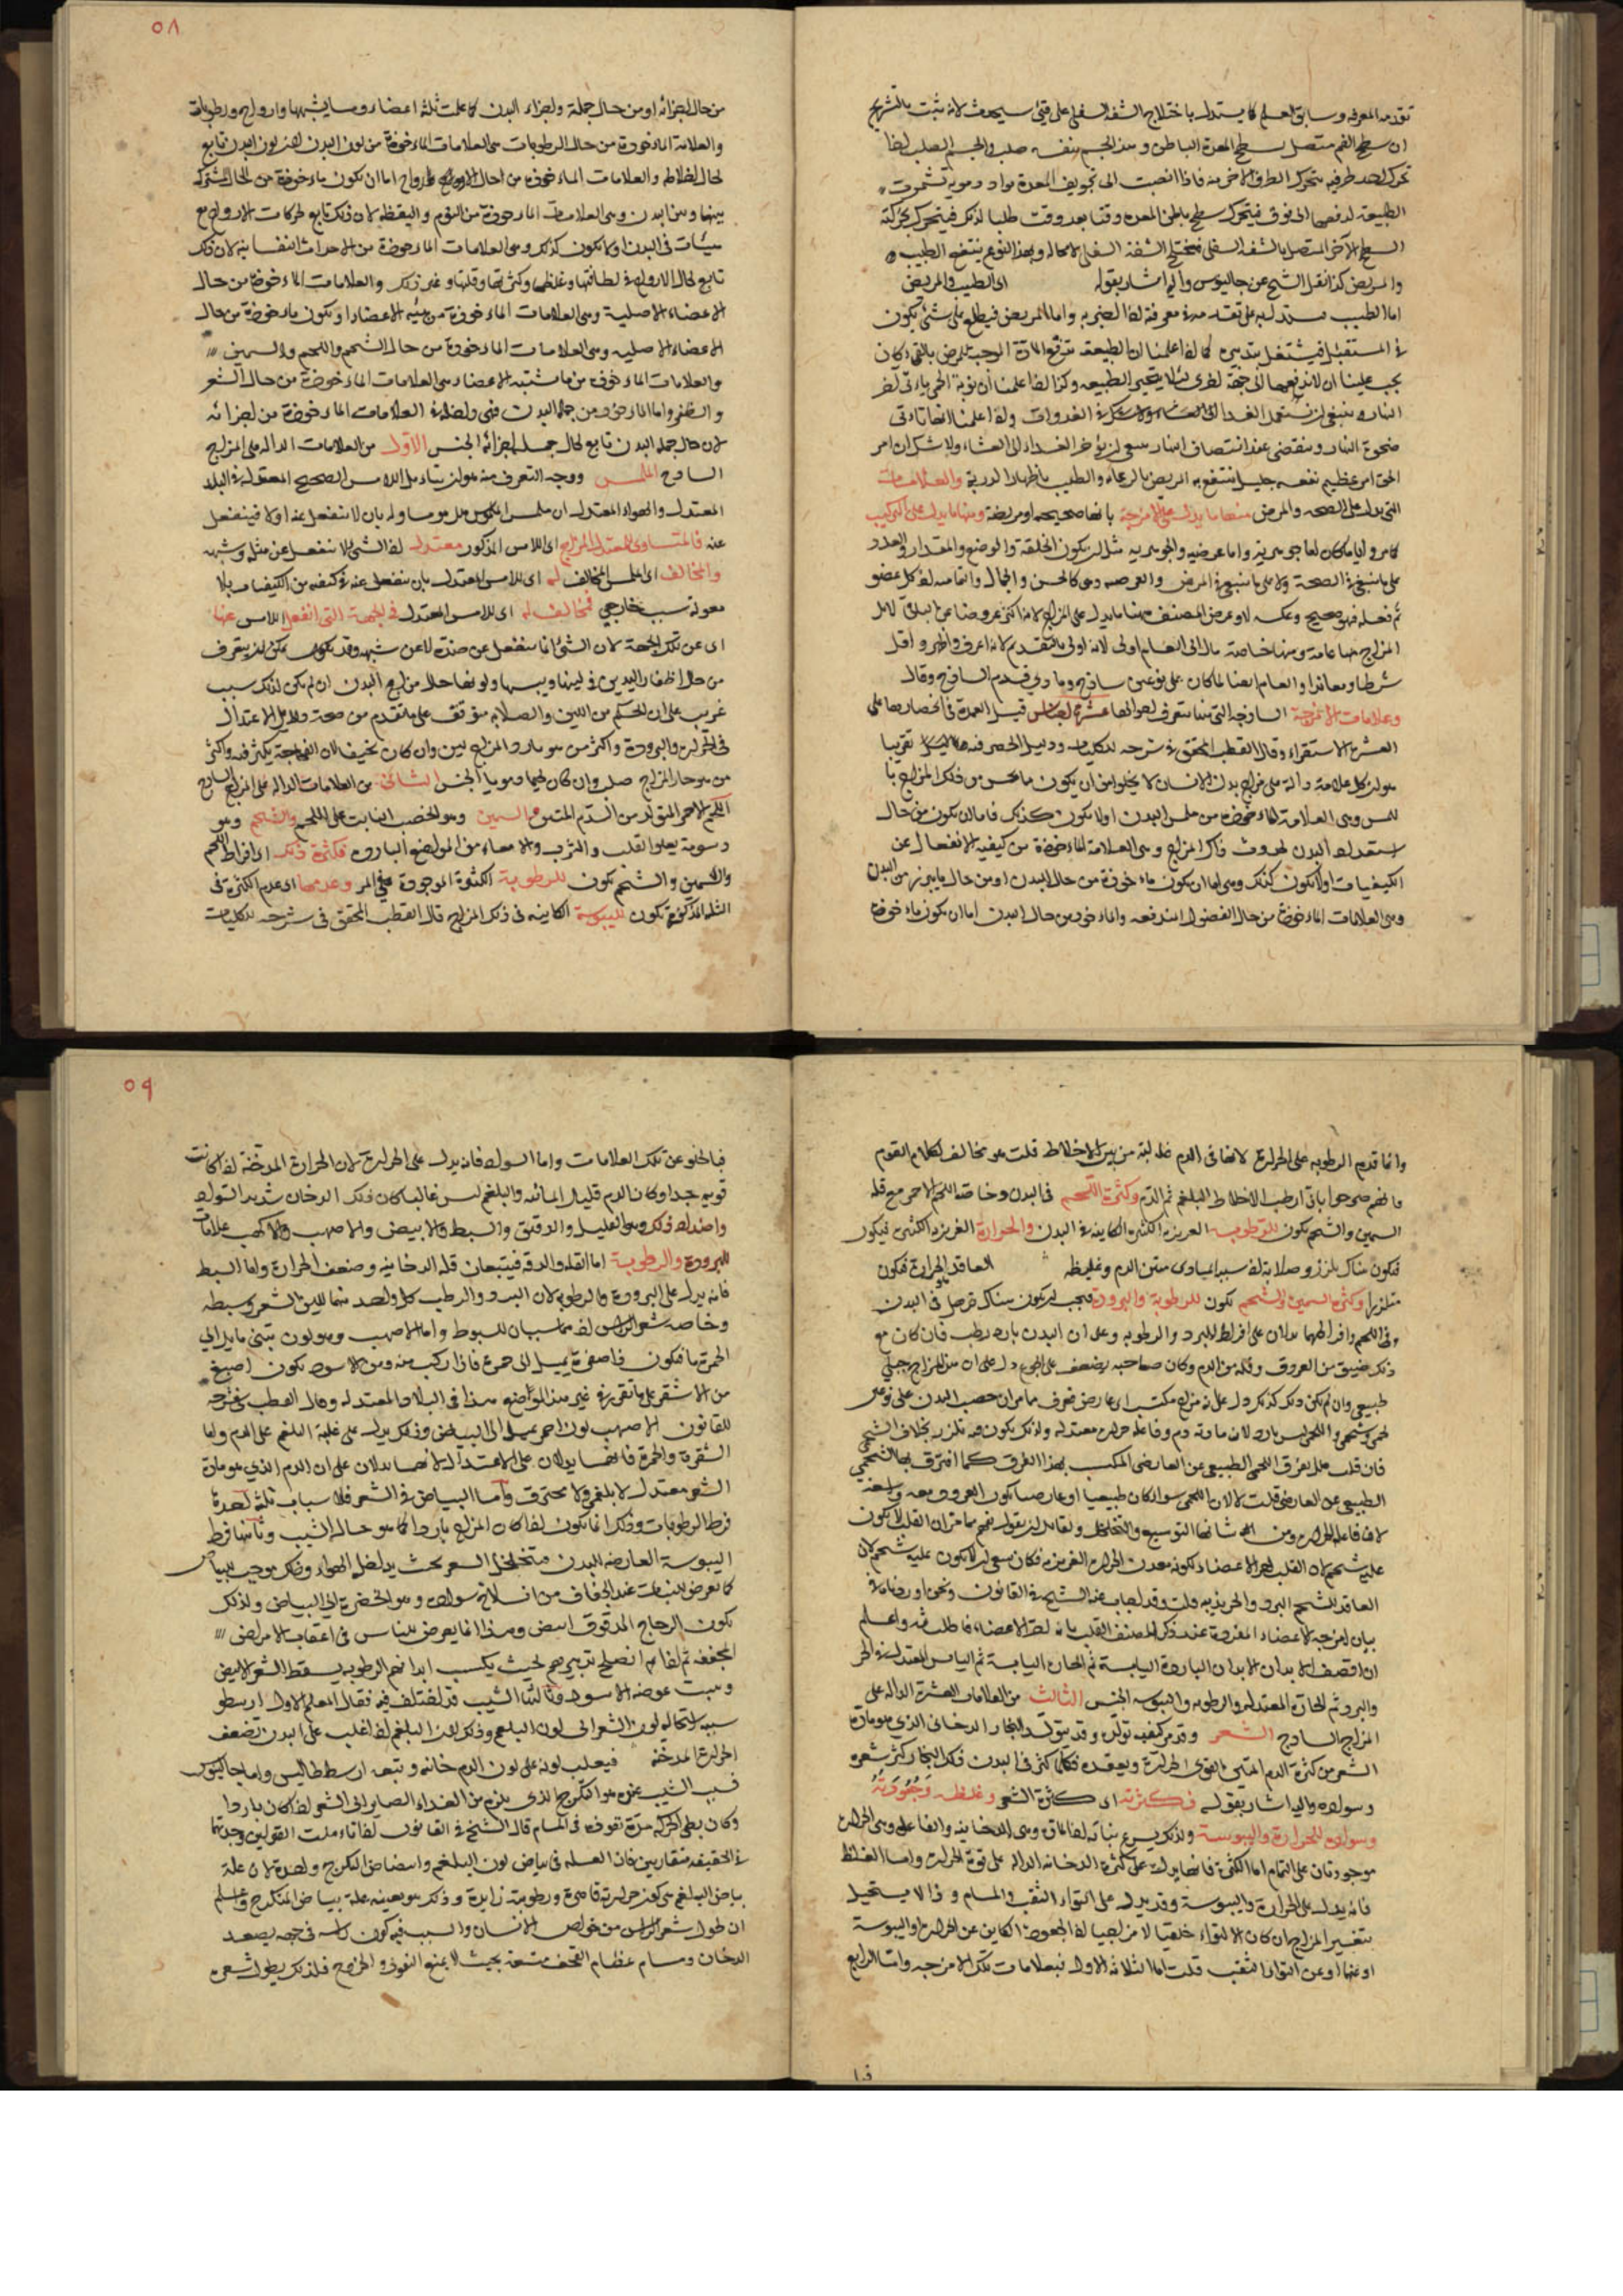 تقدمه المعرفه وسابق العلم كما يستدل باختلاج الشفه السفلى على قئ سيحدث لانه ثبت بالتشريح
ان سطح الفم متصل بسطح المعدة الباطن ومن الجسم صلب والجسم الصلب اذا
تحرك احد طرفيه تحرك الطرف الاخر منه فاذا انصبت الى تجويف المعدة مواد رديه تشمرت
الطبيعه لدفعها الى فوق فيتحرك سطح باطن المعدة وقتا بعد وقت طلبا لذلك فيتحرك بحركته
السطح الآخر المتصل بالشفه السفلى فتختلج الشفة السفلى لا محاله وبهذا النوع ينتفع الطبيب
والمريض كذا نقل الشيخ عن جالينوس واليه اشار بقوله اى الطبيب والمريض
اما الطبيب فيستدل به على تقدمه فى معرفة واما المريض فيطلع على شئ يكون
فى المستقبل فيشتغل بتدبيره كما اذا علمنا ان الطبيعه تدفع المادة الموجبة للمرض بالقئ كان
يجب علينا ان لا ندفعها الى جهة اخرى لئلا يتحير الطبيعه وكذا اذا علمنا أن نوبة الحمى ياتى اخر
النهار
ضحوة النهار وينقضى عند انتصاف النهار ينبغى ان يؤخر الغداء الى العشاء ولا شك ان امر
الحق امر عظيم نفعه جليل ينتفع به المريض والطبيب والعلامات
التى يدل على الصحه والمرض منها ما يدل على الامزجة بانها صحيحه او مريضة ومنها ما يدل على التركيب
كامر واياما كان اما جوهريه واما عرضيه والجوهريه مثل ان يكون الخلقة والوضع والمقدار والعدد
على ما ينبغى فى الصحة ولا على ما ينبغى فى المرض والعرضيه كالحسن والجمال والتماميه اذ كل عضو
تم فعله فهو صحيح وعكسه
المزاج منها عامة ومنها خاصة
شرطا والعام ايضا لما كان على نوعين ساذج ومادى قدم الساذج وقال
وعلامات الامزجة الساذجة التى منها يتعرف احوالها عشرة اجناس قيل العمدة فى انحصارها على
العشرة الاستقراء وقال القطب المحقق فى شرحه للكليات ودليل الحصر فيها تقريبا
هو ان كل علامة دالة على مزاج بدن الانسان لا يخلو اما ان يكون
للمس وهى العلامة الماخوذة من ملمس البدن اولا يكون كذلك فاما ان يكون من حال
استعداد البدن لحدوث ذلك المزاج وهى العلامة الماخوذة من كيفيه الانفعال عن
الكيفيات اولا يكون كذلك وهى اما ان يكون ماخوذة من حال البدن او من حال ما يبرز من البدن
وهى العلامات الماخوذة من حال الفضول المندفعه والماخوذ من حال البدن اما ان يكون ماخوذة
٥٨
من حال اجزائه او من حال جملة واجزاء البدن كما علمت ثلثة اعضاء وما يشبهها وارواح ورطوبات
والعلامة الماخوذة من حال الرطوبات هى العلامات الماخوذة من لون البدن اذ لون البدن تابع
لحال الاخلاط والعلامات الماخوذة من احوال الارواح اما ان يكون ماخوذة من الحال المشتركه
بينها وبين البدن وهى العلامات الماخوذة من النوم واليقظة لان ذلك تابع لحركات الارواح مع
هيئات فى البدن اولا يكون كذلك وهى العلامات الماخوذة من الاحداث النفسانيه لان ذلك
تابع لحال الارواح فى لطافتها وغلظها وكثرتها وقلتها وغير ذلك والعلامات الماخوذة من حال
الاعضاء الاصلية وهى العلامات الماخوذة من هيئه الاعضاء او يكون ماخوذة من حال
الاعضاء الاصليه وهى العلامات الماخوذة من حال الشحم واللحم والسمين
والعلامات الماخوذة من ما يشبه الاعضاء وهى العلامات الماخوذة من حال الشعر
والظفر واما الماخوذ من جملة البدن فهى داخلة فى العلامات الماخوذة من اجزائه
لان حال جملة البدن تابع لحال جملة اجزائه الجنس الاول من العلامات الداله على المزاج
الساذج الملمس ووجه التعرف منه هو ان يتأمل اللامس الصحيح المعتدل فى البلاد
المعتدله والهواء المعتدل ان ملمس الملموس هل هو مساو له بان لا ينفعل عنه اولا فينفعل
عنه فالمتساوى للمعتدل المزاج اى اللامس المذكور معتدل اذ الشئ لا ينفعل عن مثله وشبهه
والمخالف اى الملمس المخالف له اى للامس المعتدل بان ينفعل عنه فى كيفيه من الكيفيات بلا
معونة سبب خارجى فمخالف له اى للامس المعتدل فى الجهة التى انفعل اللامس عنها
اى عن تلك الجهة لان الشئ انما ينفعل عن ضده لا عن شبهه وقد يكون يمكن ان يتعرف
من حال اظفار اليدين فى لينها ويبسها ولونها حال مزاج البدن ان لم يكن لذلك سبب
غريب على ان الحكم من اللين والصلابه متوقف على ما تقدم من صحة دلائل الاعتدال
فى الحرارة والبرودة واكثر من هو بارد المزاج لين وان كان نحيفا لان الفجاجة يكثر فيه واكثر
من هو حار المزاج صلب وان كان لحيما قويا الجنس الثانى من العلامات الداله على المزاج الساذج
اللحم الاحمر المتولد من الدم المتين والسمين وهو الخصب النابت على اللحم والشحم وهو
دسومة يعلو القلب والثرب والامعاء من المواضع الباردة فكثرة ذلك اى افراط اللحم
والسمين والشحم يكون للرطوبة الكثيرة الموجودة وعدمها اى عدم الكثرة فى
الثلثه المذكورة يكون لليبوسة الكائنه فى ذلك المزاج قال القطب المحقق فى شرحه للكليات
وانما قدم الرطوبه على الحرارة لانها فى الدم غالبة من بين الاخلاط قلت هو مخالف لكلام القوم
فانهم صرحوا بان ارطب الاخلاط البلغم ثم الدم وكثرة اللحم فى البدن وخاصة اللحم الاحمر مع قلة
السمين والشحم يكون للرطوبه الغريزيه الكثيرة الكائنه فى البدن والحرارة الغريزيه الكثيرة فيكون
فيكون هناك تلزز وصلابة اذ سببه المادى متين الدم وغليظه العاقد الحرارة فيكون
متلززا وكثرة السمين والشحم يكون للرطوبة والبرودة فيجب ان يكون هناك ترهل فى البدن
وفى اللحم وافراطهما يدلان على افراط البرد والرطوبه وعلى ان البدن بارد رطب فان كان مع
ذلك ضيق من العروق وقلة من الدم وكان صاحبه يضعف على الجوع دل على ان هذا المزاج جبلى
طبيعى وان لم يكن ذلك كذلك دل على انه مزاج مكتسب اى عارض فعرف مما مر ان خصب البدن على نوعين
لحمى وشحمى واللحمى ليس بارد لان مادته دم وفاعله حرارة معتدله ولذلك يكون فيه تلزز بخلاف الشحمى
فان قلت هل يفرق اللحمى الطبيعى عن العارضى المكتسب بهذا الفرق كما افترق بها الشحمى
الطبيعى عن العارضى قلت لا لان اللحمى سواء كان طبيعيا او عارضيا يكون العروق معه واسعة
لان فاعله الحرارة ومن شانها التوسيع والتخلخل ولقائل ان يقول فهم مما مر ان القلب لا يكون
عليه شحم لان القلب احر الاعضاء لكونه معدن الحرارة الغريزيه فكان ينبغى ان لا يكون عليه شحم لان
العاقد للشحم البرد والحر يذيبه قلت وقد اجاب عنه الشيخ فى القانون ونحن اوردناه فى
بيان امزجه الاعضاء المفردة عند ذكر المصنف القلب بانه احر الاعضاء فاطلب ثمه واعلم
ان اقضف الابدان الابدان الباردة اليابسة ثم الحارة اليابسة ثم اليابس المعتدل فى الحر
والبرد ثم الحارة المعتدله فى الرطوبه واليبوسه الجنس الثالث من العلامات العشرة الداله على
المزاج الساذج الشعر وقد مر كيفيه تولده وقد يتولد البخار الدخانى الذى هو مادة
الشعر من كثرة الدم المتين بالقوى الحرارة ويعقده فكلما كثر فى البدن ذلك البخار كثر شعره
وسواده واليه اشار بقوله فكثرته اى كثرة الشعر وغلظه وجعودته
وسواده للحرارة واليبوسة ولذلك يسرع نباته اذ المادة وهى الدخانيه والفاعل وهى الحرارة
موجودتان على التمام اما الكثرة فانها يدل على كثرة الدخانيه الداله على قوة الحرارة واما الغلظ
فانه يدل على الحرارة واليبوسة وقد يدل على التواء الثقب والمسام وذا لا يستحيل
بتغيير المزاج ان كان الالتواء خلقيا لا مزاجيا اذ الجعودة الكائن عن الحرارة او اليبوسة
او عنها او عن التواء الثقب قلت اما الثلاثة الاول فبعلامات تلك الامزجه واما الرابع
فبا
٥٩
فبالخلو عن تلك العلامات واما السواد فانه يدل على الحرارة لان الحرارة المدخنة اذا كانت
قويه جدا وكان الدم قليل المائيه والبلغم ليس غالبا كان ذلك الدخان شديد السواد
واضداد ذلك وهى القليل والدقيق والسبط والابيض والاصهب علامات
للبرودة والرطوبة اما القله والدقه فيتبعان قله الدخانيه وضعف الحرارة واما السبط
فانه يدل على البرودة والرطوبه لان البرد والرطب كل واحد منهما يلين الشعر ويسبطه
وخاصه شعر الراس اذ هما سببان للسبوط واما الاصهب وهو لون تبنى مايل الى
الحمرة ما فيكون فى اصفره يميل الى حمرة فاذا ركب منه ومن الاسود يكون اصبغ
من الاشقر على ما تقرر فى غير هذا المواضع هذا فى البلاد المعتدله وقال القطب فى شرحه
للقانون الاصهب لون احمر يميل الى البياض وذلك يدل على غلبة البلغم على الدم واما
الشقرة والحمرة فانهما يدلان على الاعتدال لانهما يدلان على ان الدم الذى هو مادة
الشعر معتدل لا بلغمى ولا محترق وأما البياض فى الشعر فلاسباب ثلثة احدها
فرط الرطوبات وذلك انما يكون اذا كان المزاج باردا كما هو حال الشيب وثانيها فرط
اليبوسة العارضه للبدن متخلخل الشعر بحيث يداخله الهواء وذلك موجب للبياض
كما يعرض للنبات عند الجفاف من انسلاخ سواده وهو الخضرة الى البياض ولذلك
يكون الزجاج المدقوق ابيض وهذا انما يعرض للناس فى اعقاب الامراض
المجففه ثم اذا انصلح تدبيرهم بحيث يكسب ابدانهم الرطوبه يسقط الشعر الابيض
وينبت عوضه الاسود وثالثها الشيب قد اختلف فيه فقال المعلم الاول ارسطو
سببه استحالة لون الشعر الى لون البلغم وذلك لان البلغم اذا غلب على البدن تضعف
الحرارة المدخنه فيغلب لونه على لون الدم خانه وتبعه ارسطاطاليس واما جالينوس
فسبب الشيب عنده هو التكرج الذى يلزم من الغذاء الصاير الى الشعر اذا كان باردا
وكان بطئ الحركه مدة نفوذه فى المسام قال الشيخ فى القانون اذا تأملت القولين وجدتهما
فى الحقيقه متقاربين فان العله فى بياض لون البلغم وابيضاض المتكرج واحدة لان علة
بياض البلغم هى حرارية قاصرة ورطوبة زايدة وذلك هو بعينه علة بياض المتكرج واعلم
ان طول شعر الراس من خواص الانسان والسبب فيه كون راسه فى جهه يصعد
الدخان ومسام عظام القحف متسعة بحيث لا يمنع النفوذ والخروج فلذلك يطول شعره